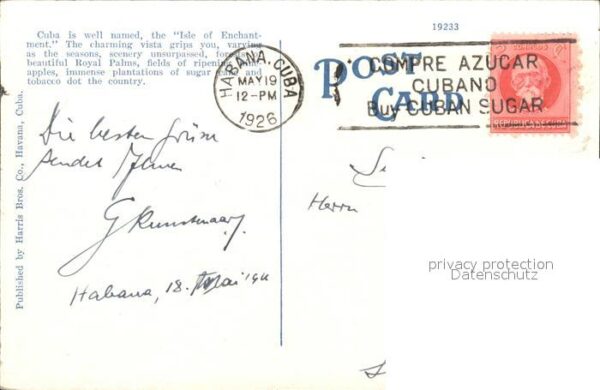 Cuba is well named, the "Isle of Enchant-
ment." The charming vista grips you, varying
as the seasons, scenery unsurpassed, forests
beautiful Royal Palms, fields of ripening
apples, immense plantations of sugar and
tobacco dot the country.
19233
POST
CARD
HABANA, CUBA
MAY 19
12-PM
1926
COMPRE AZUCAR
CUBANO
Buy CUBAN SUGAR
REPUBLICA
Die besten Grüsse
sendet Ihnen
Habana, 18. Mai
Herrn
Published by Harris Bros. Co., Havana, Cuba.
privacy protection
Datenschutz